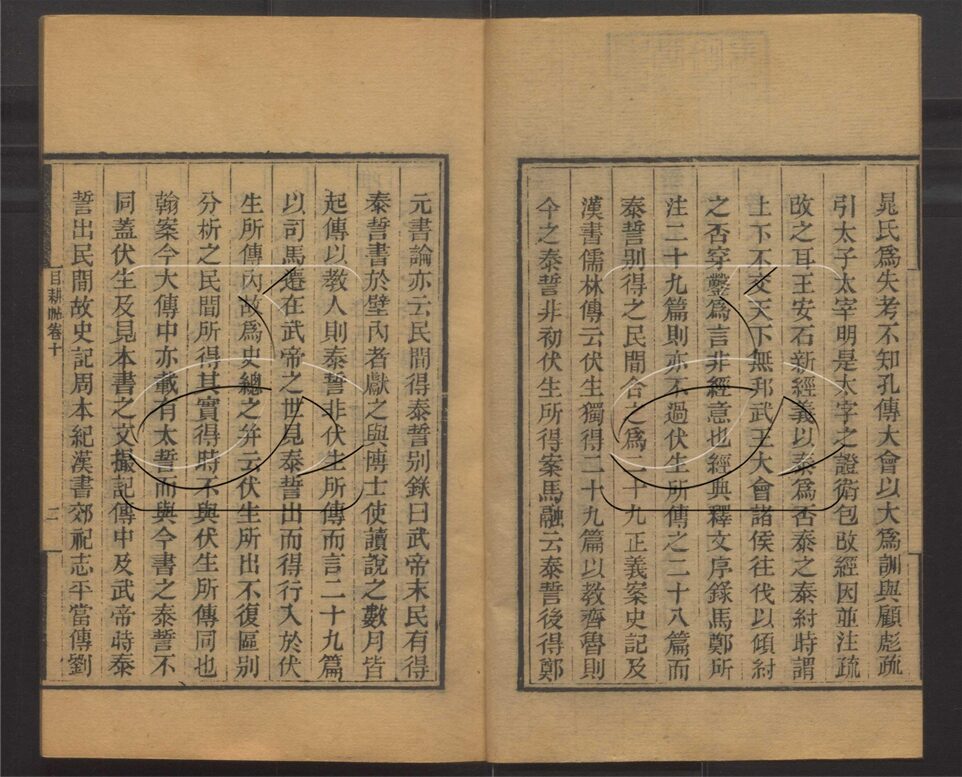 晁氏爲失考不知孔傳大會以大爲訓與顧彪疏
引太子太宰明是太字之證術包改經因並注疏
改之耳王安石新經義以泰爲否泰之泰紂時謂
上下不交天下無邦武王大會諸侯往伐以傾紂
之否穿鑿爲言非經意也經典釋文序錄馬鄭所
注二十九篇則亦不過伏生所傳之二十八篇而
泰誓別得之民間合之爲二十九正義案史記及
漢書儒林傳云伏生獨得二十九篇以教齊魯則
今之泰誓非初伏生所得案馬融云泰誓後得鄭
元書論亦云民間得泰誓別錄曰武帝末民有得
泰誓書於壁內者獻之與博士使讀說之數月皆
起傳以教人則泰誓非伏生所傳而言二十九篇
以司馬遷在武帝之世見泰誓出而得行入於伏
生所傳內故爲史總之并云伏生所出不復區別
分析之民間所得其實得時不與伏生所傳同也
翰案今大傳中亦載有太誓而與今書之泰誓不
同蓋伏生及見本書之文撮記傳中及武帝時泰
誓出民間故史記周本紀漢書郊祀志平當傳劉
目耕帖卷十
二